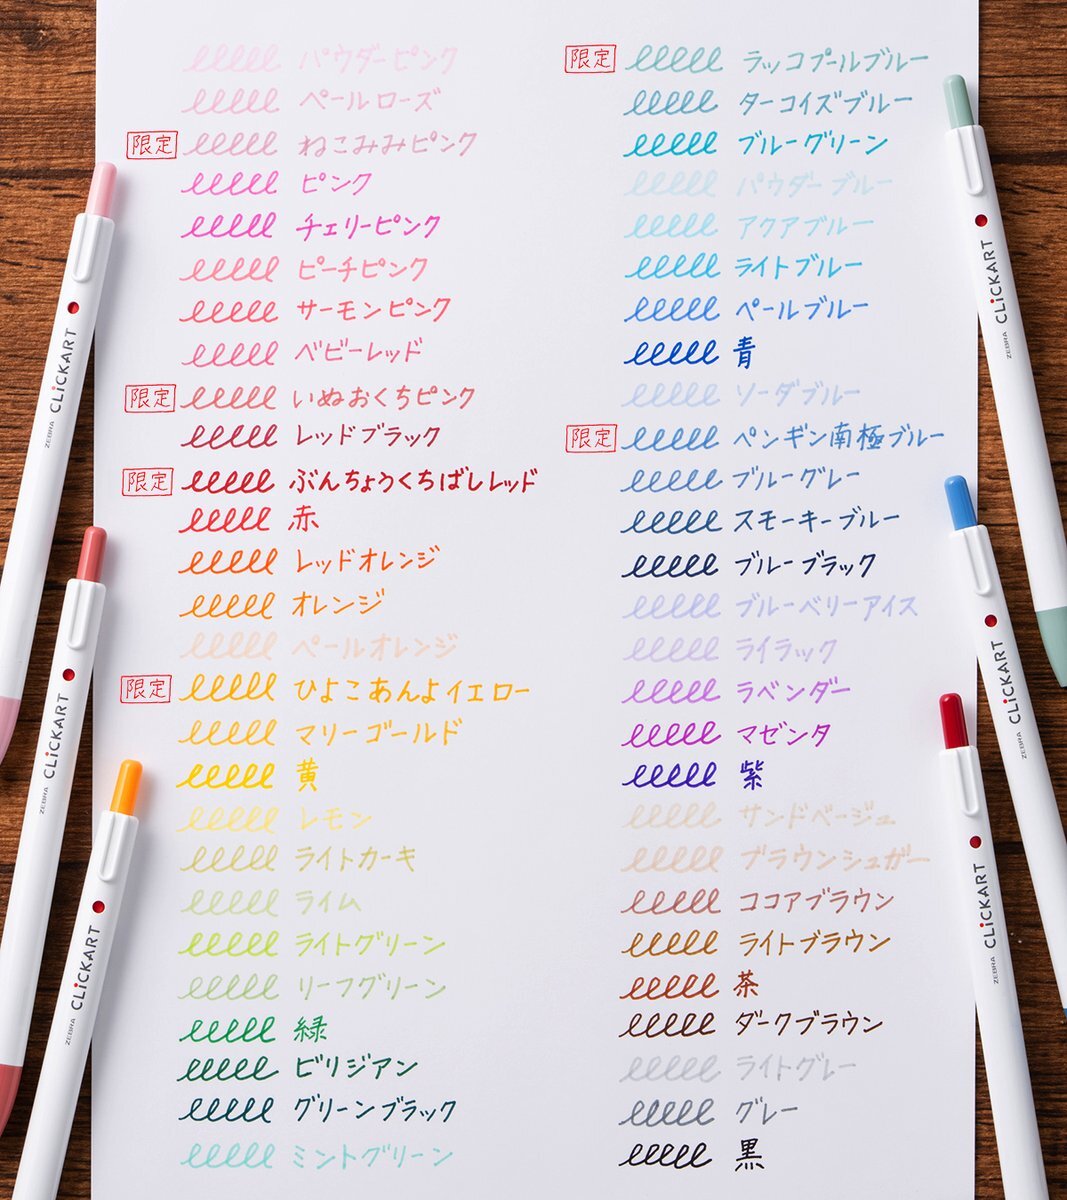 パウダーピンク
ペールローズ
限定 ねこみみピンク
ピンク
チェリーピンク
ピーチピンク
サーモンピンク
ベビーレッド
限定 いぬおくちピンク
レッドブラック
限定 ぶんちょうくちばしレッド
赤
レッドオレンジ
オレンジ
ペールオレンジ
限定 ひよこあんよイエロー
マリーゴールド
黄
レモン
ライトカーキ
ライム
ライトグリーン
リーフグリーン
緑
ビリジアン
グリーンブラック
ミントグリーン
限定 ラッコプールブルー
ターコイズブルー
ブルーグリーン
パウダーブルー
アクアブルー
ライトブルー
ペールブルー
青
ソーダブルー
限定 ペンギン南極ブルー
ブルーグレー
スモーキーブルー
ブルーブラック
ブルーベリーアイス
ライラック
ラベンダー
マゼンタ
紫
サンドベージュ
ブラウンシュガー
ココアブラウン
ライトブラウン
茶
ダークブラウン
ライトグレー
グレー
黒
ZEBRA CLiCKART
ZEBRA CLiCKART
ZEBRA CLiCKART
ZEBRA CLiCKART
ZEBRA CLiCKART
ZEBRA CLiCKART